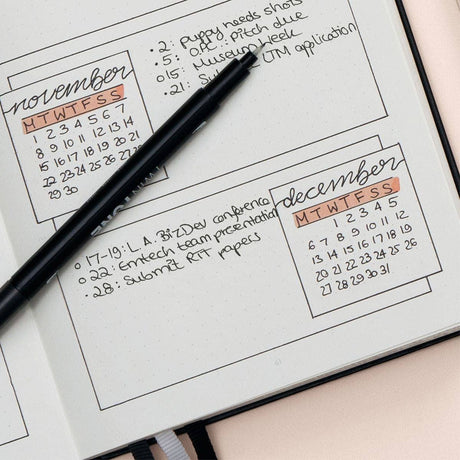 • 2: puppy needs shots
• 5: OPC: pitch due
o 15: Museum Week
• 21: application
november
M T W T F S S
1 2 3 4 5 6 7
8 9 10 11 12 13 14
15 16 17 18 19 20 21
22 23 24 25 26 27
29 30
o 17-19: L.A. BizDev conference
o 22: Emtech team presentation
• 28: Submit RTT papers
december
M T W T F S S
1 2 3 4 5
6 7 8 9 10 11 12
13 14 15 16 17 18 19
20 21 22 23 24 25 26
27 28 29 30 31